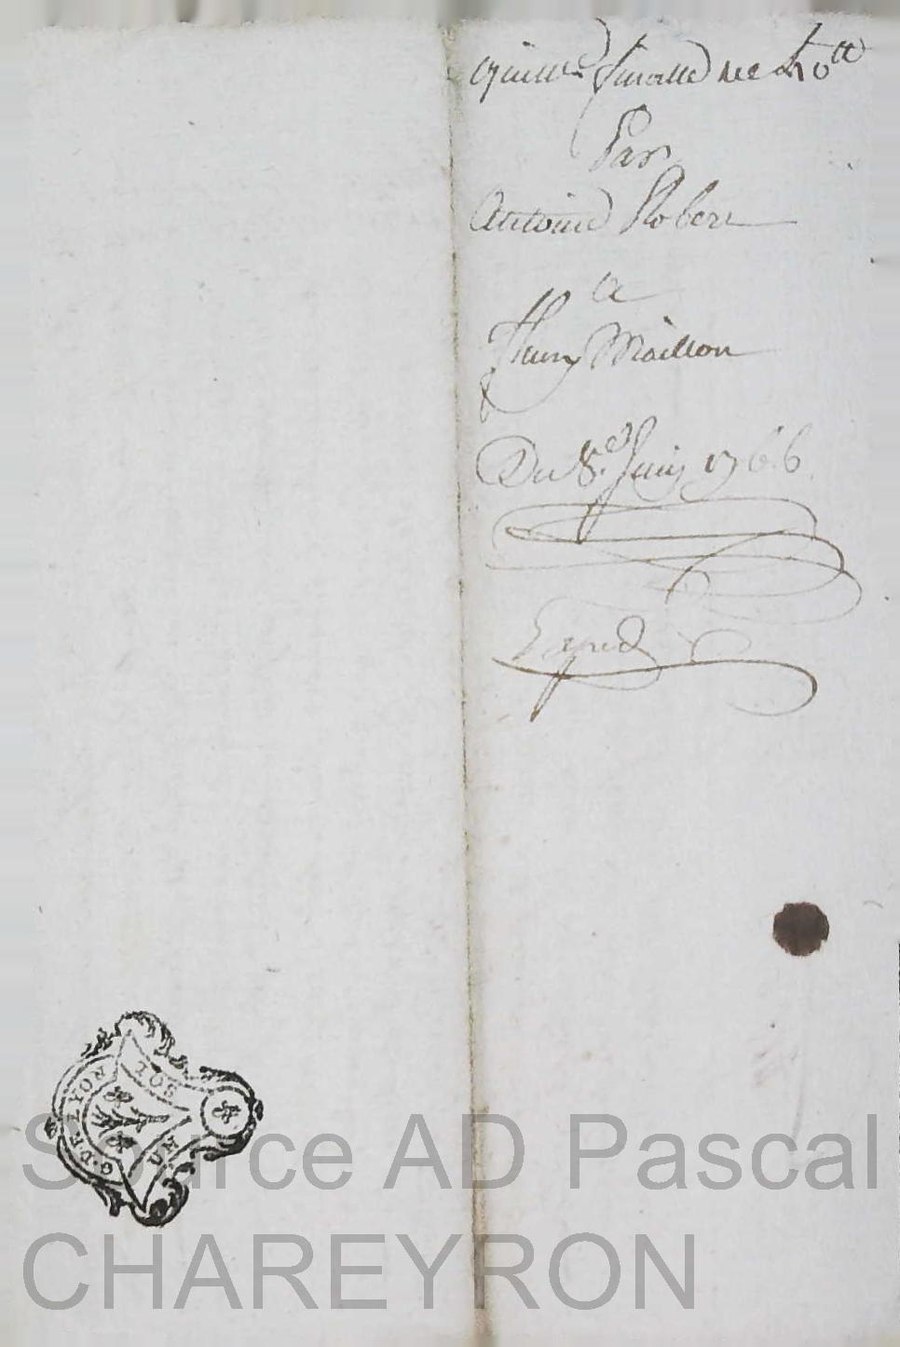 quitt.ce finalle de
Par
Antoine Robert
a
Henry Maillon
Du 8.e Juin 1766
Exped
G. DE LYON
UN SOL
Source AD Pascal
CHAREYRON